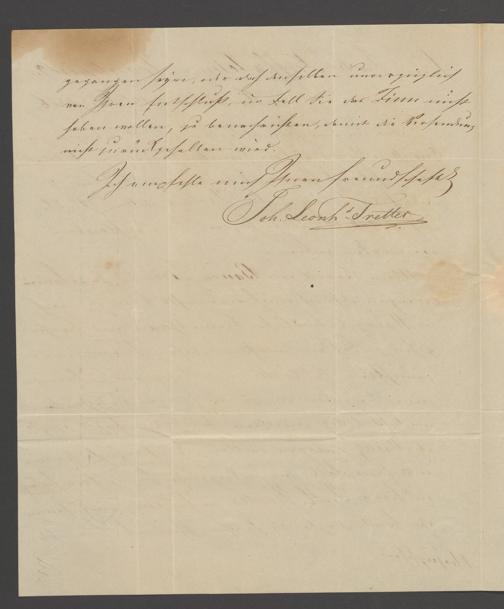 gegangen seyn, oder doch denselben unverzüglich
von Ihrem Entschluße, im Fall Sie das Zinn nicht
haben wollen, zu benachrichten, damit die Versendung
nicht zurückgehalten wird.
Ich empfehle mich Ihrer Freundschaft
Joh. Leonh. Tretter